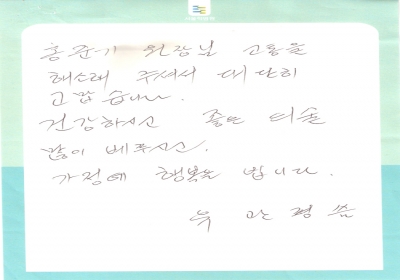 홍준기 원장님 고통을
해소해 주셔서 대단히
고맙습니다.
건강하시고 좋은 의술
많이 베푸시고.
가정에 행복을 빕니다.
유 만 평 씀